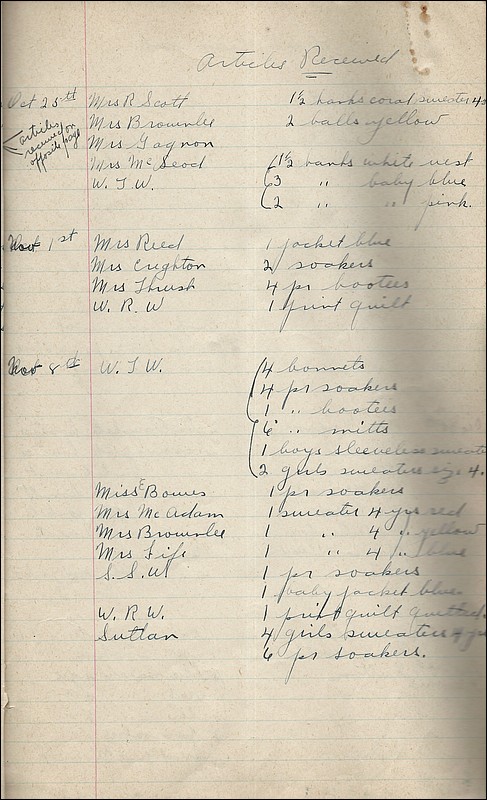 Articles Received
Oct 25th Mrs R Scott 1½ hanks coral sweater 4
Mrs Brownlee 2 balls yellow
articles received on opposite page
Mrs Gagnon
Mrs McLeod 1½ hanks white vest
W. T. W. 3 " baby blue
2 " " pink.
Nov 1st Mrs Reed 1 jacket blue
Mrs Creghton 2 soakers
Mrs Thrush 4 pr bootees
W. R. W 1 print quilt
Nov 8th W. T. W. 4 bonnets
4 pr soakers
1 " bootees
6 " mitts
1 boys sleeveless sweater
2 girls sweaters size 4.
Miss E Bowes 1 pr soakers
Mrs McAdam 1 sweater 4 yrs red
Mrs Brownlee 1 " 4 " yellow
Mrs Fife 1 " 4 " blue
S. S. W 1 pr soakers
1 baby jacket blue
W. R. W. 1 print quilt quilted.
Suttan 4 girls sweaters 4 yrs
6 pr soakers.